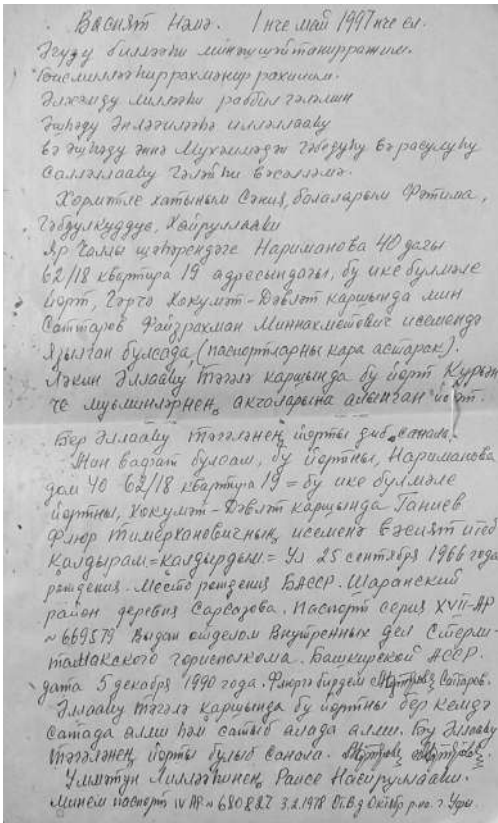 Васият Нәмә. 1 нче май 1997 нче ел.
Әгузу билләһи минәшшәйтанирражим.
Бисмилләһиррахмәнир рахиим.
Әлхәмду лилләһи раббил гәләмин
Әшһәду Әнләәиләһә илләллааһу
вә әшһәду әннә Мухәммәдән гәбдуһу вә расулуһу
Салләллааһу Гәләйһи вәсәлләмә.
Хөрмәтле хатыным Сәния, болаларым Фәтима,
Гәбдулкуддус, Хәйруллааһи
Яр Чаллы шәһәрендәге Нариманова 40 дагы
62/18 квартира 19 адресындагы, бу ике булмәле
йорт, Гәрчә Хокумәт-Дәвләт каршында мин
Саттаров Файзрахман Миннахметович исемендә
Язылган булсада, (паспортларны кара астарак).
Ләкин Әллааһу Тәгәлә каршында бу йорт Курьән
че муьминләрнең акчаларына алынган йорт.
Бер Әллааһу Тәгәләнең йорты санала.
Мин вафат булсам, бу йортны, Нариманова
дом 40 62/18 квартира 19 = бу ике булмәле
йортны, Хокумәт-Дәвләт каршында Ганиев
Флюр Тимерхановичның исеменә вәсият итеб
калдырам = калдырдым = Ул 25 сентября 1966 года
рождения. Место рождения БАССР. Шаранский
район деревня Сарсазова. Паспорт серия XVII-АР
№ 669579 Выдан отделом Внутренных дел Стерли-
тамакского горисполкома. Башкирской АССР.
дата 5 декабря 1990 года. Флюргә бирдем Саттаров.
Әллааһу Тәгәлә каршында бу йортны бер кемдә
сатада алми һәм сатыб алада алми. Бу Әллааһу
Тәгәләнең йорты булыб санала.
Уммәтун Лилләһинең Раисе Насйруллааһи.
Минем паспорт IV АР № 680827 3.2.1978 Октябр р-на. г. Уфы.